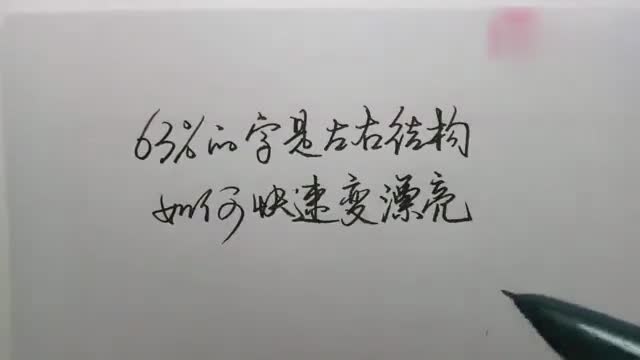 63%的字是左右结构
如何快速变漂亮